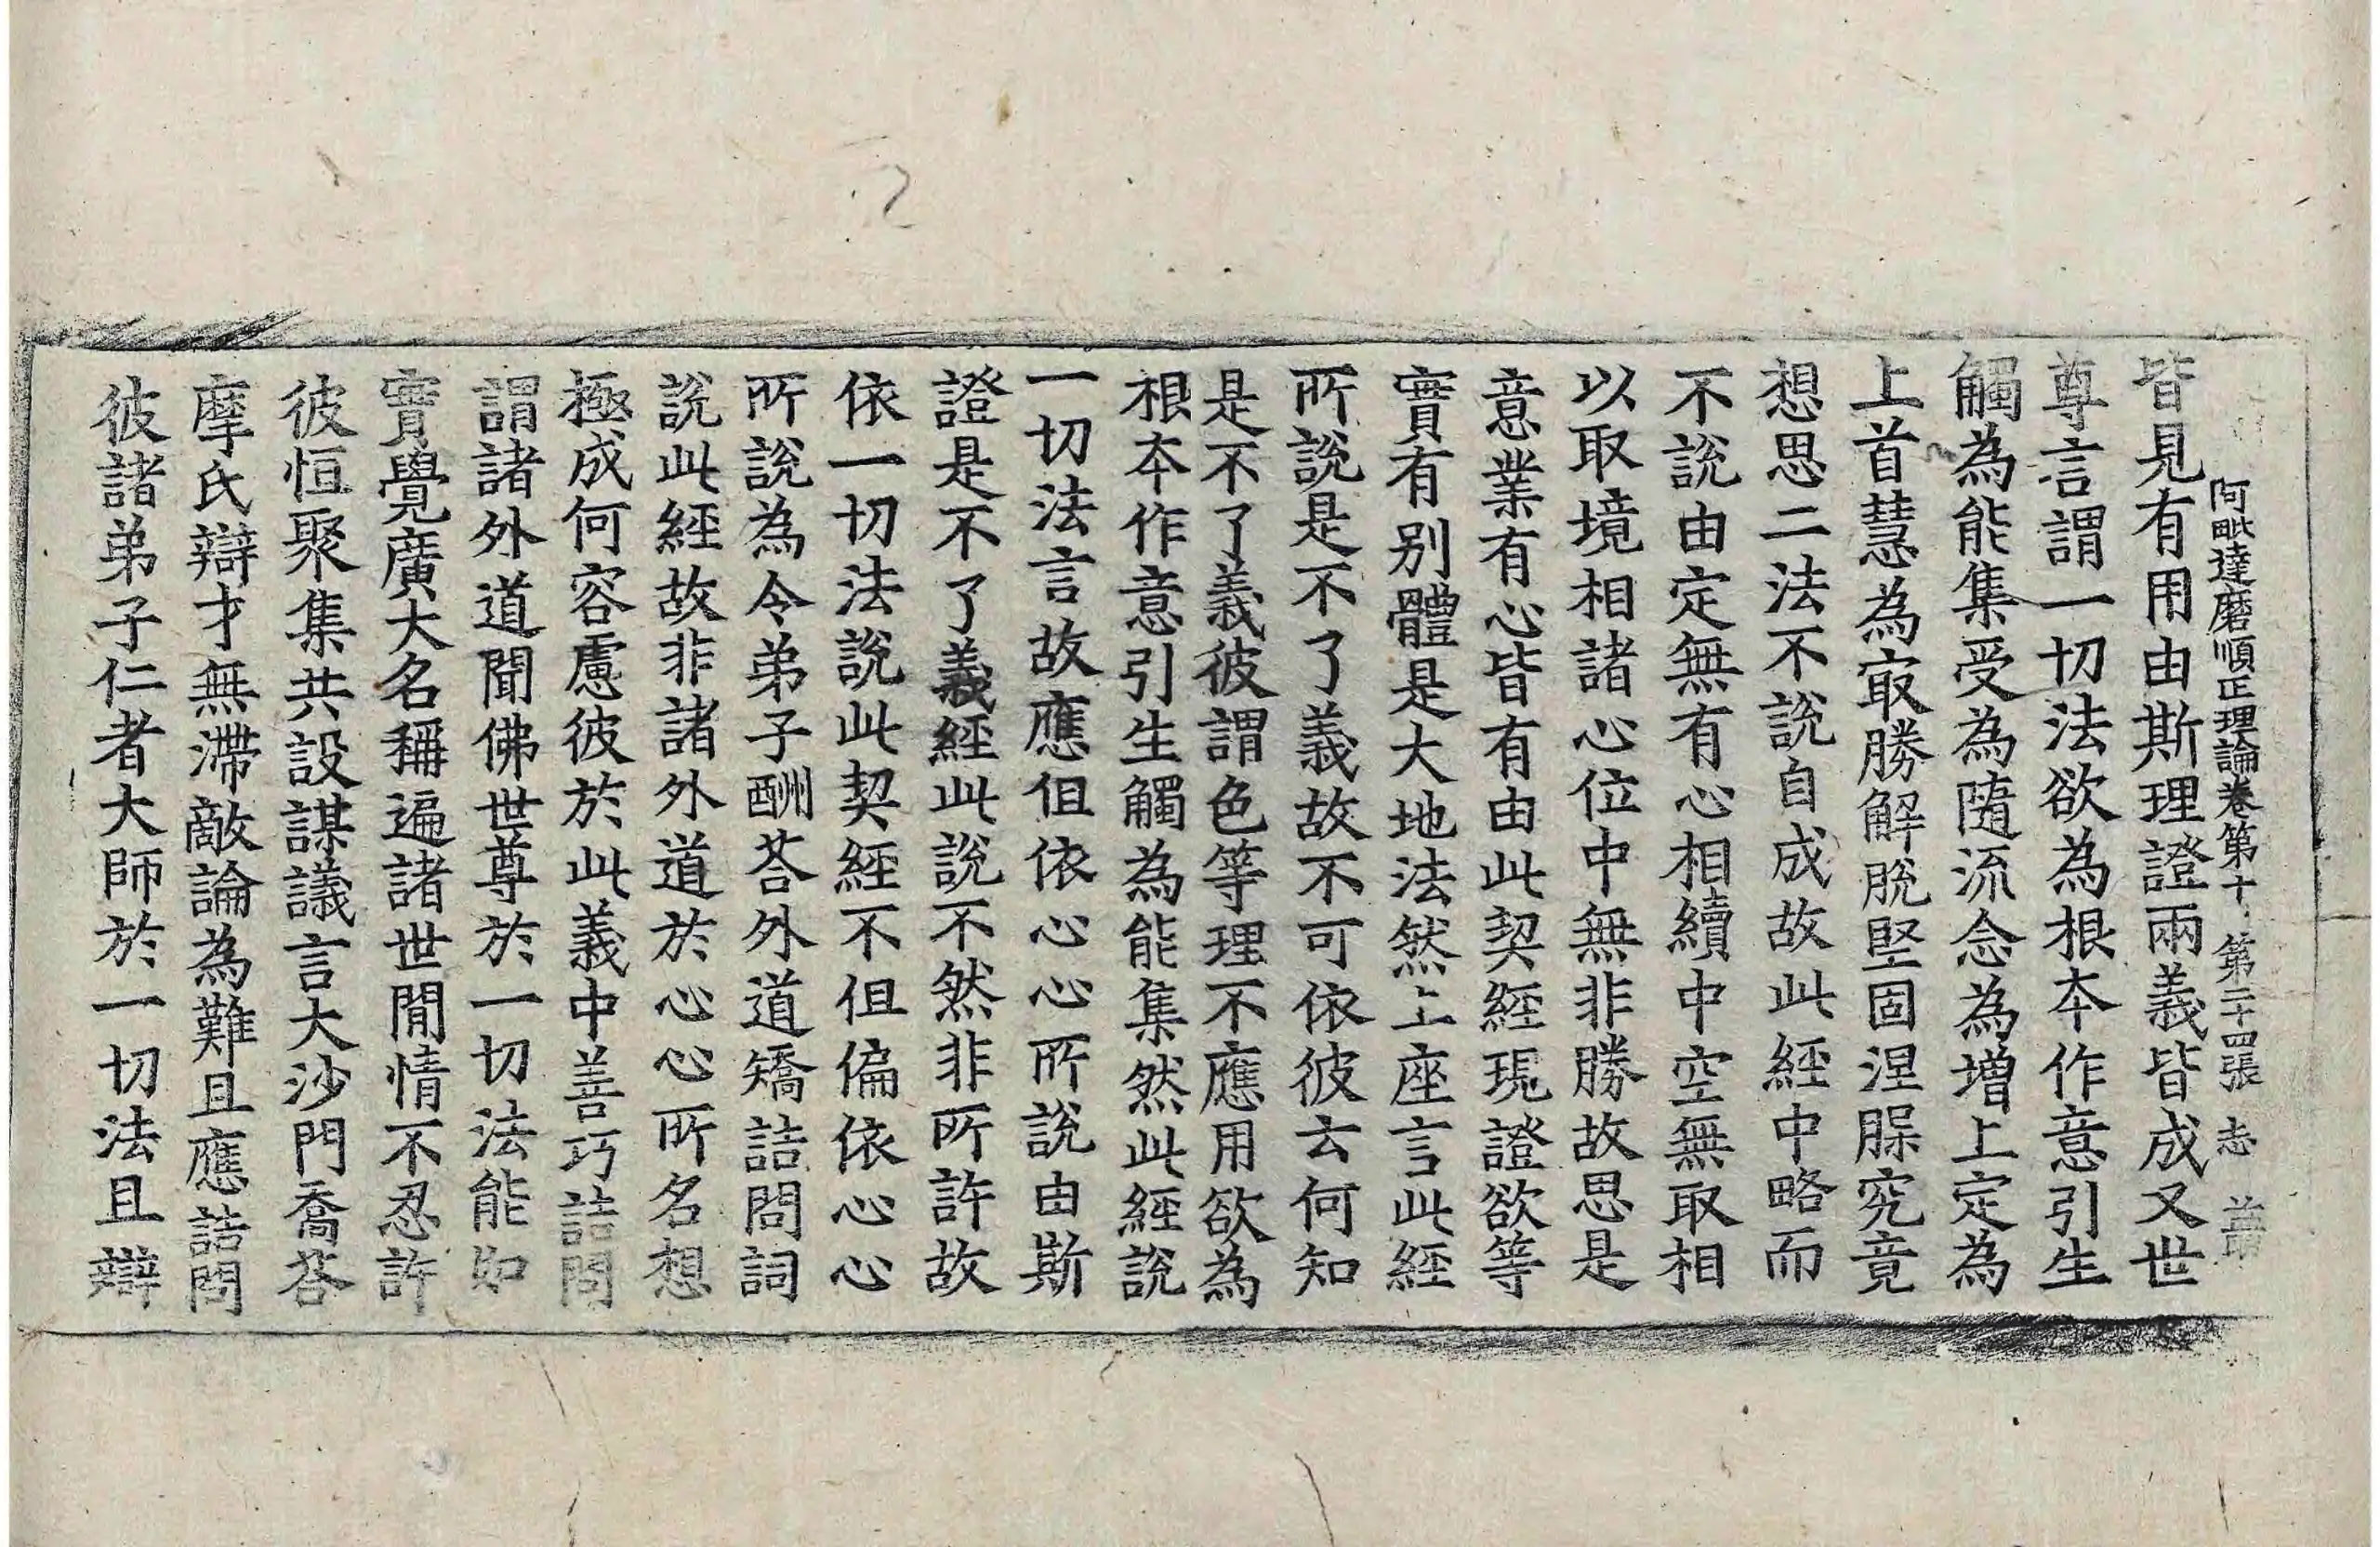 阿毗達磨順正理論卷第十 第二十四張 志
皆見有用由斯理證兩義皆成又世
尊言謂一切法欲為根本作意引生
觸為能集受為隨流念為增上定為
上首慧為㝡勝解脫堅固涅槃究竟
想思二法不說自成故此經中略而
不說由定無有心相續中空無取相
以取境相諸心位中無非勝故思是
意業有心皆有由此契經現證欲等
實有別體是大地法然上座言此經
所說是不了義故不可依彼云何知
是不了義彼謂色等理不應用欲為
根本作意引生觸為能集然此經說
一切法言故應但依心心所說由斯
證是不了義經此說不然非所許故
依一切法說此契經不但偏依心心
所說為令弟子酬荅外道矯詰問詞
說此經故非諸外道於心心所名想
極成何容慮彼於此義中善巧詰問
謂諸外道聞佛世尊於一切法能如
實覺廣大名稱遍諸世閒情不忍許
彼恒聚集共設謀議言大沙門喬荅
摩氏辯才無滯敵論為難且應詰問
彼諸弟子仁者大師於一切法且辯